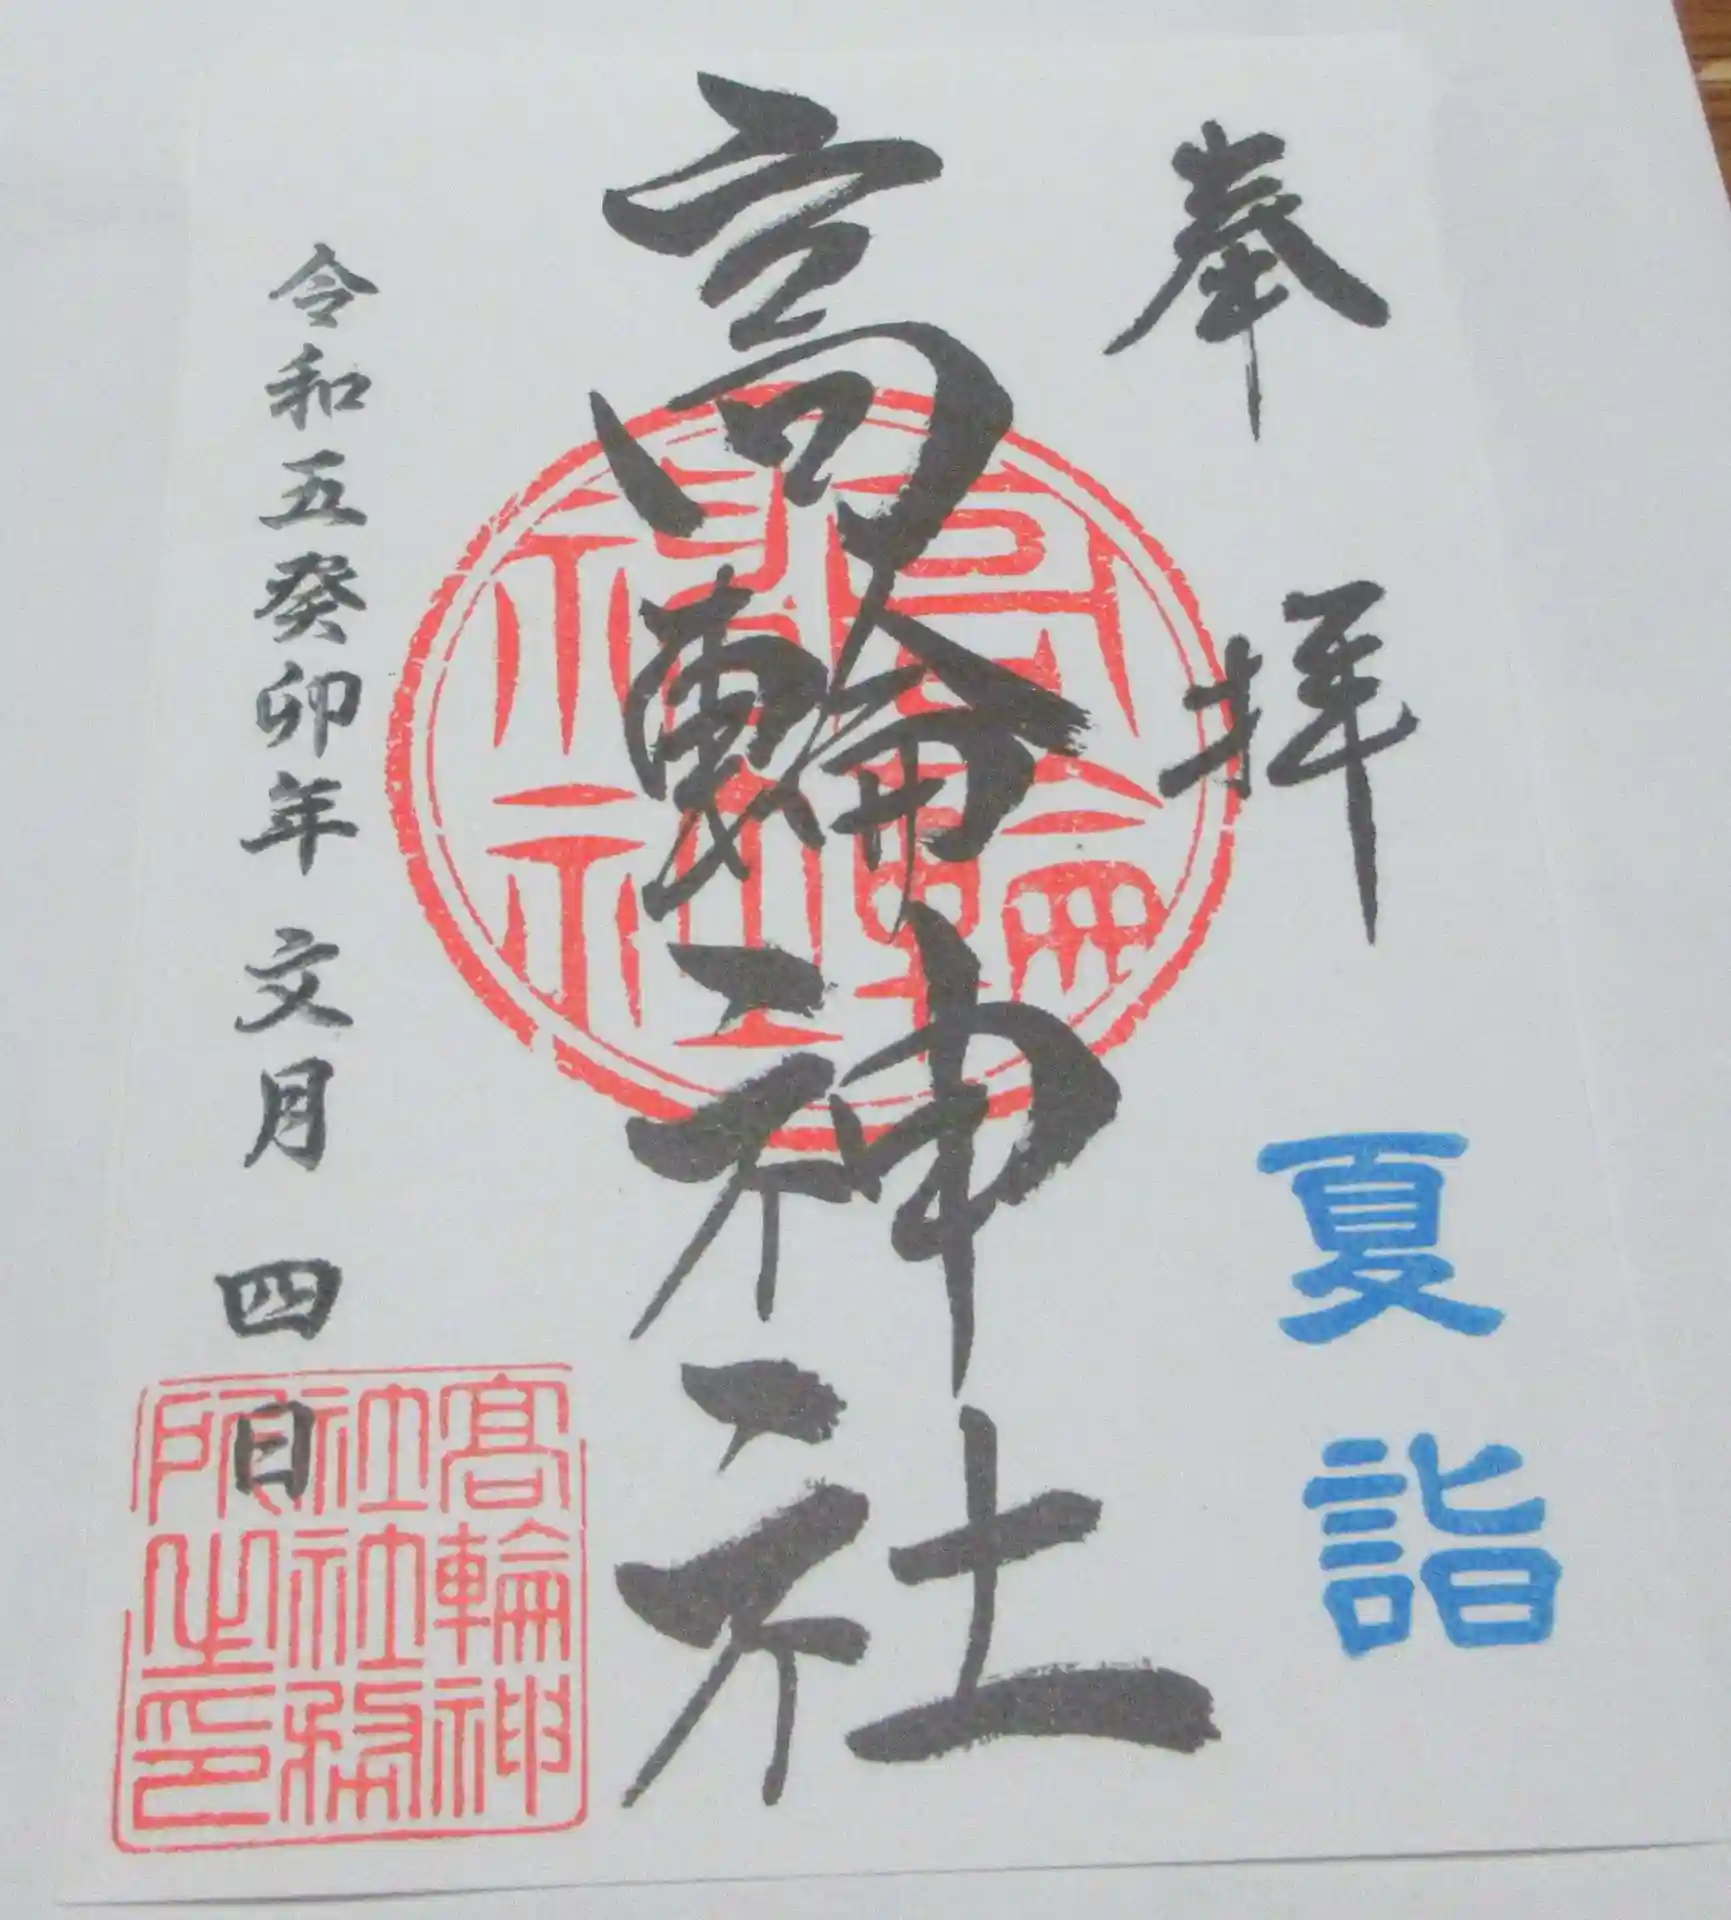 奉拝
夏詣
高輪神社
高輪神社
令和五癸卯年 文月 四日
高輪神
社社務
所之印